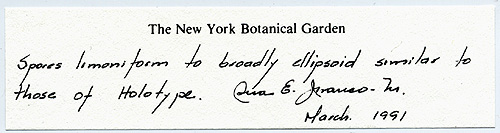 The New York Botanical Garden
Spores limoniform to broadly ellipsoid similar to
those of Holotype. Ana E. Franco-M.
March. 1991